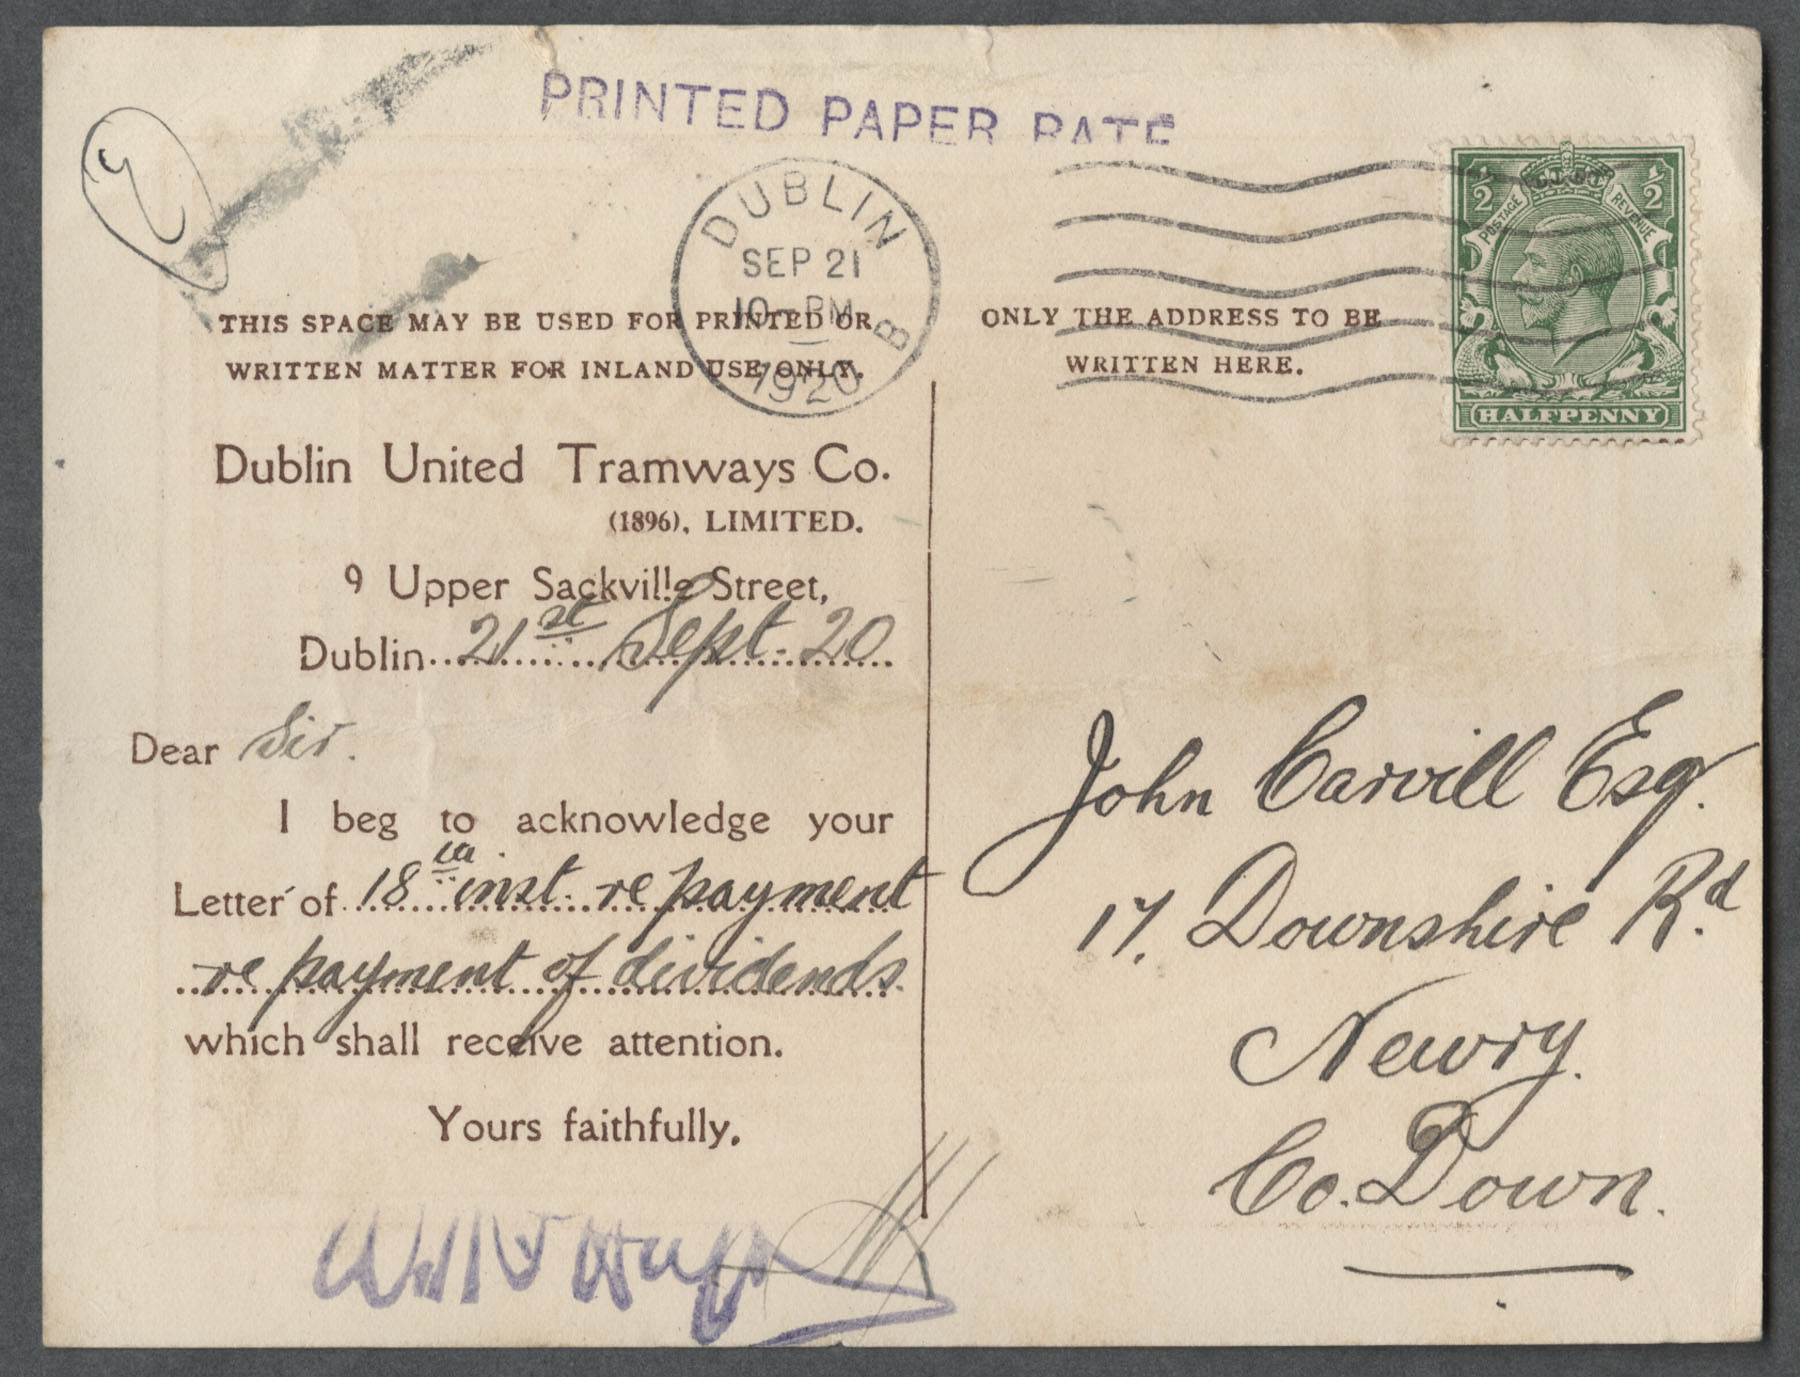 PRINTED PAPER RATE
DUBLIN
SEP 21
10 - PM
B
1920
½ ½
POSTAGE REVENUE
HALFPENNY
THIS SPACE MAY BE USED FOR PRINTED OR
WRITTEN MATTER FOR INLAND USE ONLY.
ONLY THE ADDRESS TO BE
WRITTEN HERE.
Dublin United Tramways Co.
(1896), LIMITED.
9 Upper Sackville Street,
Dublin 21st Sept. 20
Dear Sir.
I beg to acknowledge your
Letter of 18th inst. re payment
re payment of dividends.
which shall receive attention.
Yours faithfully,
John Carvill Esq.
17. Downshire Rd.
Newry.
Co. Down.